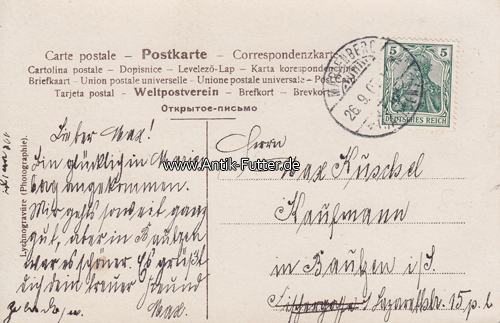 Carte postale – Postkarte – Correspondenzkarte
Cartolina postale – Dopisnice – Levelező-Lap – Karta korespondencyjna
Briefkaart – Union postale universelle – Unione postale universale – Post
Tarjeta postal – Weltpostverein – Brefkort – Brevkort
Открытое-письмо
5 5
DEUTSCHES REICH
26.9.0
www.Antik-Futter.de
Lychnogravüre (Photographie)
Lieber Max!
Bin glücklich in
angekommen.
Mir gehts soweit ganz
gut, aber in Bautzen
war es schöner. Es grüßt
Dich Dein treuer Freund
Max.
Herrn
Max Kuschel
Kaufmann
in Bautzen i/S.
Fischergasse / Lazarethstr. 15 p. l